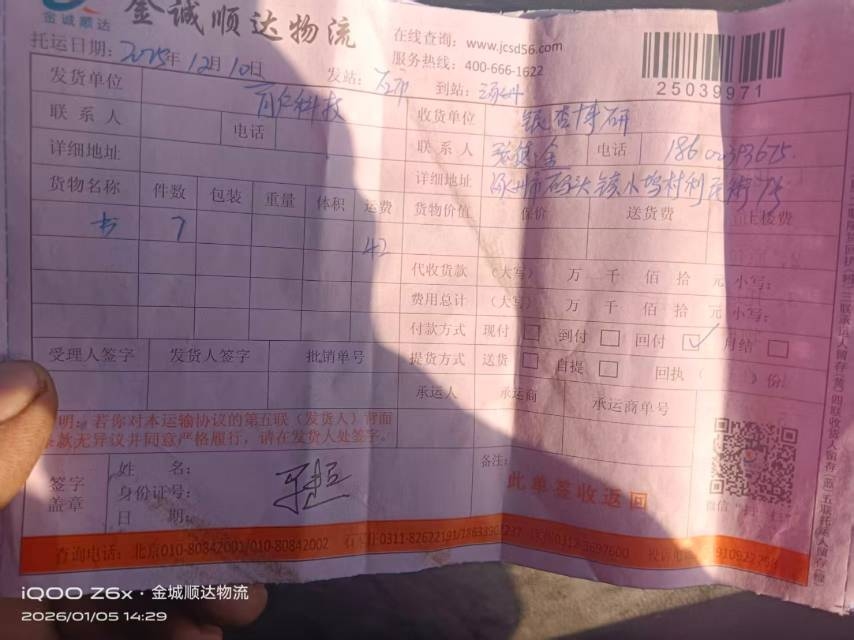 金诚顺达
金诚顺达物流
在线查询: www.jcsd56.com
服务热线: 400-666-1622
25039971
托运日期: 2025年 12月 10日
发站: 到站: 涿州
发货单位
收货单位 银杏博研
联系人 电话
联系人 电话
详细地址
详细地址 涿州市码头镇小坞村利民街
货物名称 件数 包装 重量 体积 运费
货物价值 保价 送货费
书 7 42
代收货款 (大写) 万 千 佰 拾 元 小写:
费用总计 (大写) 万 千 佰 拾 元 小写:
付款方式 现付 到付 回付 ✓ 月结
受理人签字 发货人签字 批销单号
提货方式 送货 自提 回执 ( ) 份
承运人 承运商 承运商单号
明: 若你对本运输协议的第五联(发货人)背面
条款无异议并同意严格履行, 请在发货人处签字。
签字
盖章
姓 名:
身份证号:
日 期:
备注:
此单签收返回
查询电话: 北京010-80842001/010-80842002
iQOO Z6x · 金城顺达物流
2026/01/05 14:29